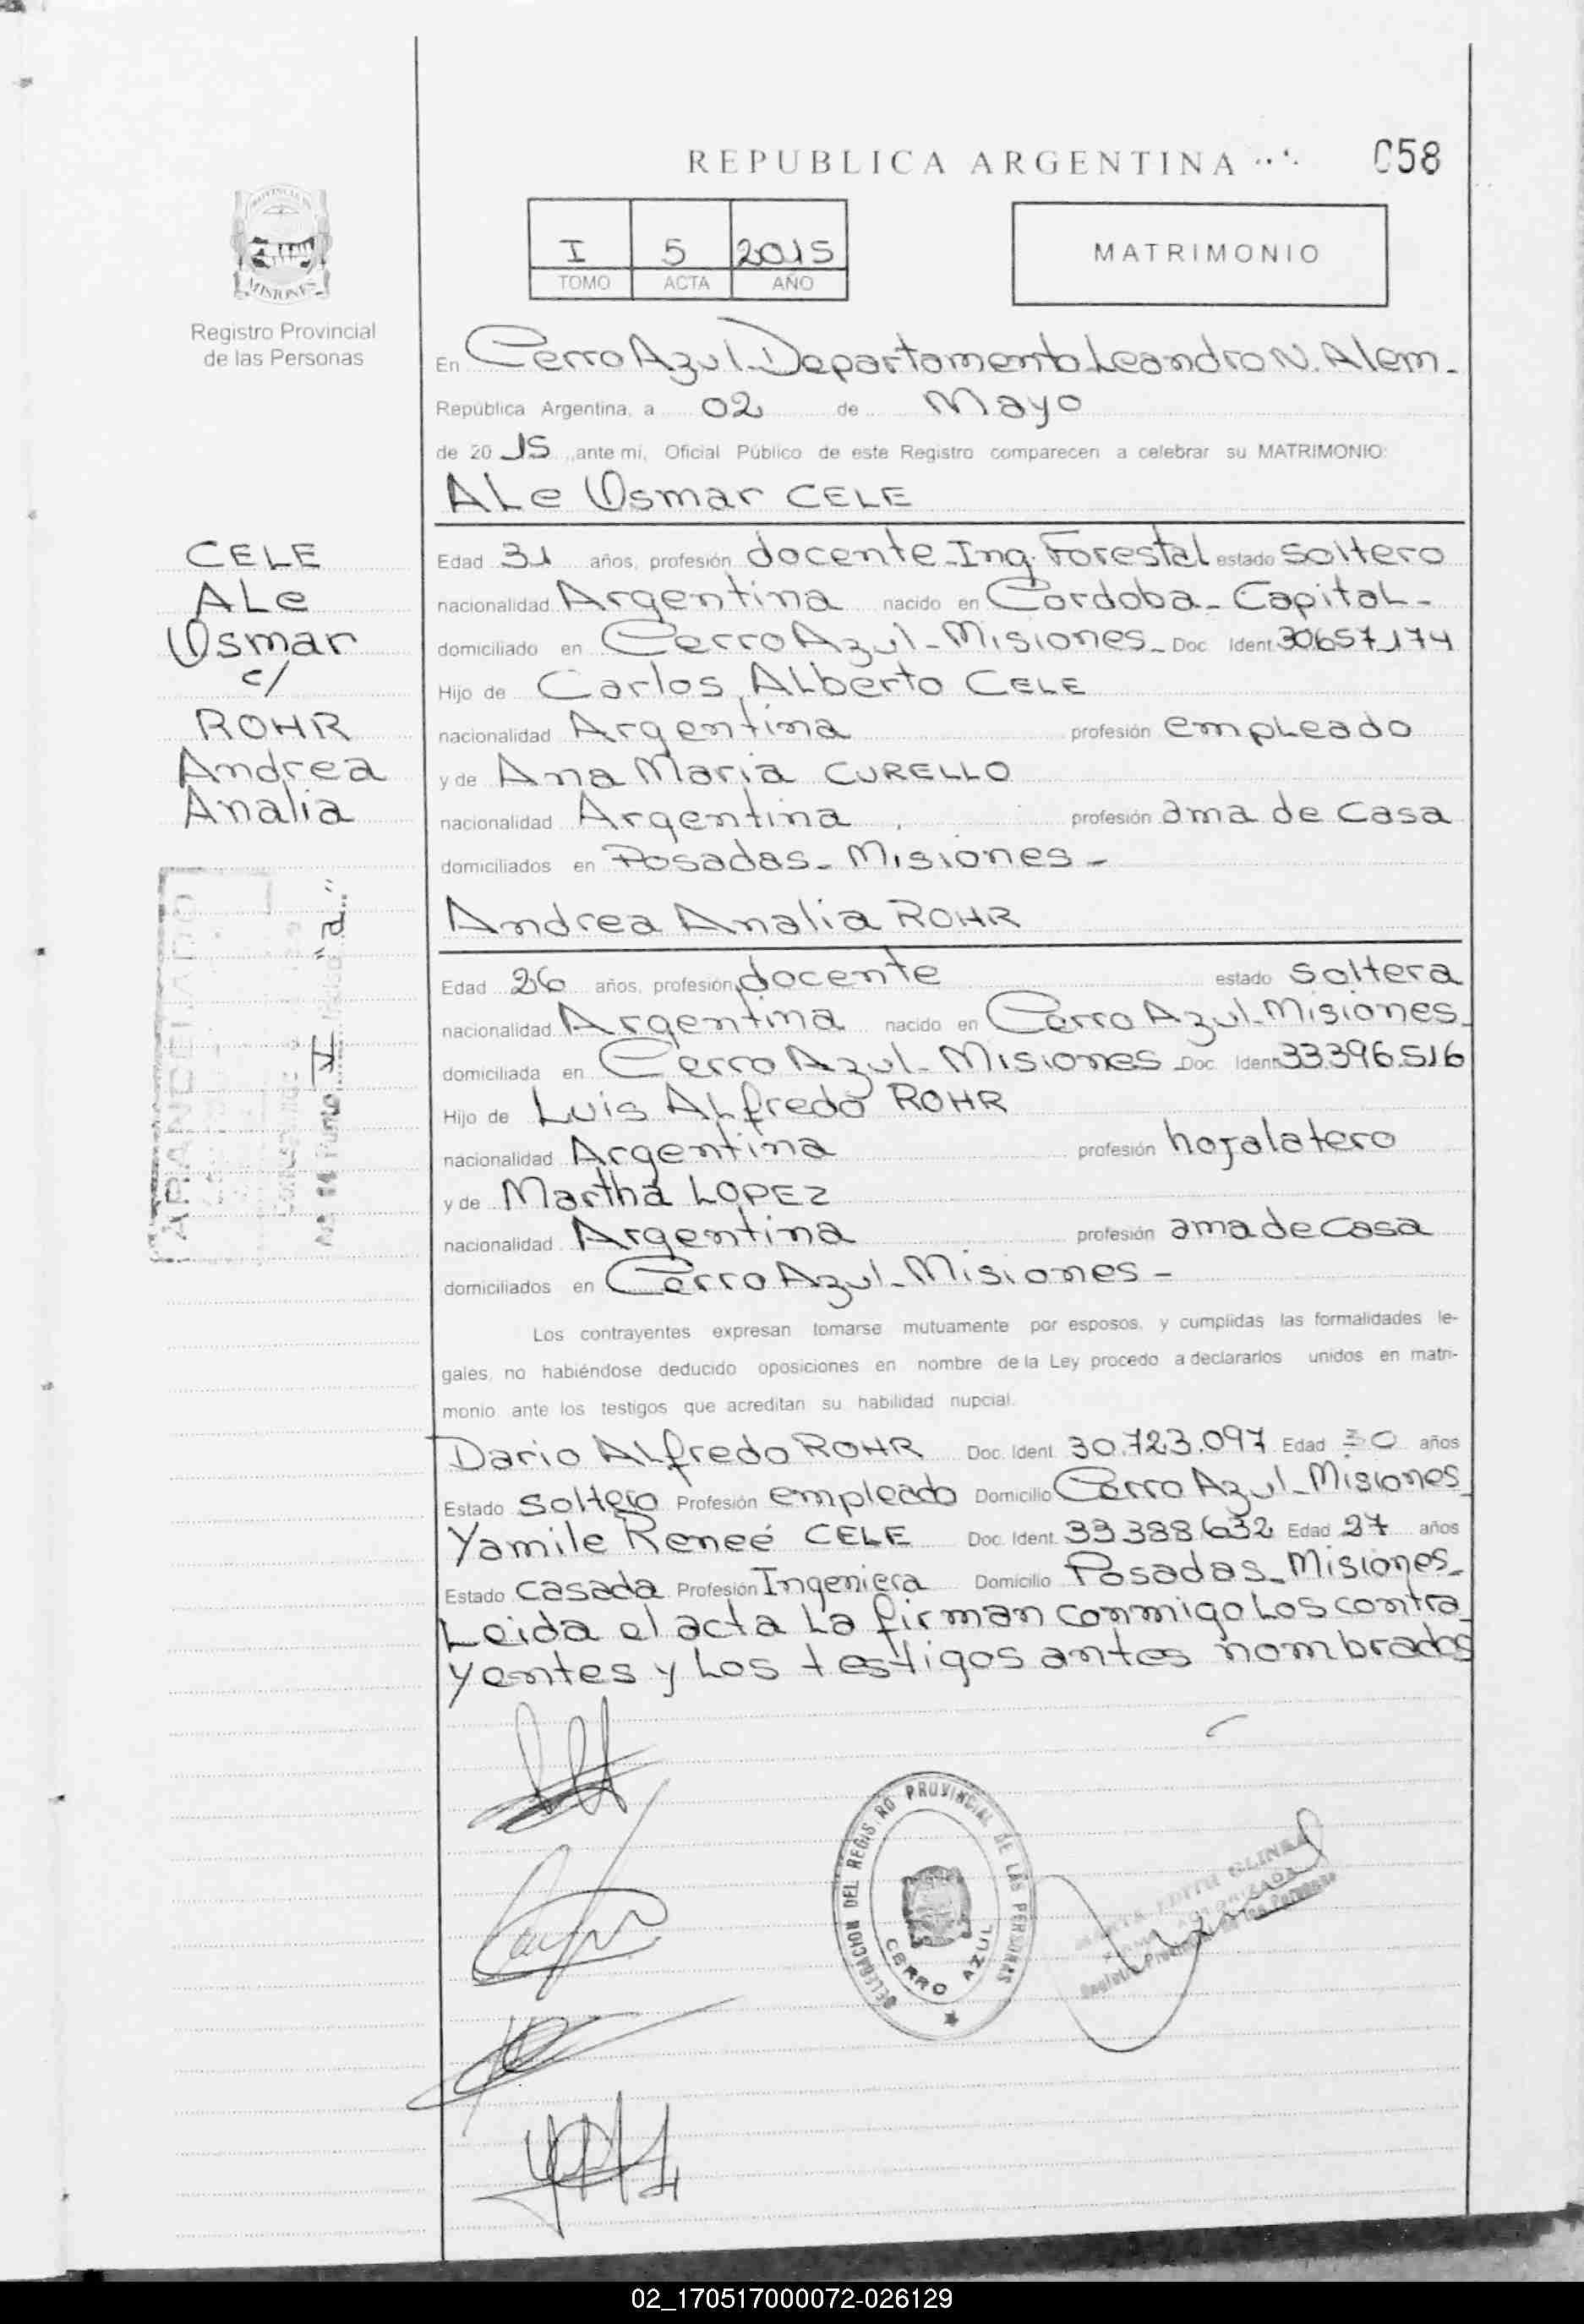 REPUBLICA ARGENTINA
058
PROVINCIA DE
MISIONES
Registro Provincial
de las Personas
I 5 2015
TOMO ACTA AÑO
MATRIMONIO
En Cerro Azul-Departamento Leandro N. Alem-
República Argentina, a 02 de Mayo
de 20 15, ante mi, Oficial Público de este Registro comparecen a celebrar su MATRIMONIO:
ALe Osmar CELE
CELE
ALe
Osmar
c/
ROHR
Andrea
Analia
Edad 31 años, profesión docente-Ing. Forestal estado soltero
nacionalidad Argentina nacido en Cordoba-Capital-
domiciliado en Cerro Azul-Misiones- Doc Ident 30.657.174
Hijo de Carlos Alberto CELE
nacionalidad Argentina profesión empleado
y de Ana Maria CURELLO
nacionalidad Argentina profesión ama de casa
domiciliados en Posadas-Misiones-
Andrea Analia ROHR
ARANCELADO
V "a"
Edad 26 años, profesión docente estado soltera
nacionalidad Argentina nacido en Cerro Azul-Misiones-
domiciliada en Cerro Azul-Misiones- Doc. Ident 33.396.516
Hijo de Luis Alfredo ROHR
nacionalidad Argentina profesión hojalatero
y de Martha LOPEZ
nacionalidad Argentina profesión ama de casa
domiciliados en Cerro Azul-Misiones-
Los contrayentes expresan tomarse mutuamente por esposos, y cumplidas las formalidades le-
gales, no habiéndose deducido oposiciones en nombre de la Ley procedo a declararlos unidos en matri-
monio ante los testigos que acreditan su habilidad nupcial.
Dario Alfredo ROHR Doc. Ident. 30.723.097 Edad 30 años
Estado soltero Profesión empleado Domicilio Cerro Azul-Misiones
Yamile Reneé CELE Doc. Ident. 33.388.632 Edad 27 años
Estado casada Profesión Ingeniera Domicilio Posadas-Misiones-
Leida el acta la firman conmigo los contra
yentes y los testigos antes nombrados
DELEGACION DEL REGISTRO PROVINCIAL DE LAS PERSONAS
CERRO AZUL
EDITH
AUTORIZADA
Registro Provincial de las Personas
02_170517000072-026129